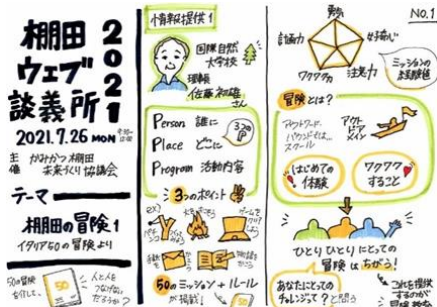 棚田
ウェブ
談義所
2021
2021.7.26 MON
主催
かみかつ棚田
未来づくり協議会
テーマ
棚田の冒険1
イタリア50の冒険より
50の冒険
を介して、
50
人と人を
つなげない
だろうか?
情報提供1
国際自然
大学校
理事長
佐藤初雄
さん
Person 誰に
Place どこに
Program 活動内容
3つのP
3つのポイント
ex)
火をおこそう
50のミッション+ルール
が掲載!
No.1
勇気
計画力
好奇心
ワクワク力
注意力
ミッションの
冒険とは?
アウトワード
バウンドスクール
アウト
ドア
メイン
はじめての
体験
ワクワク
すること
ひとりひとりにとっての
冒険はちがう!
あなたにとっての
チャレンジは?
これを提供
するのが